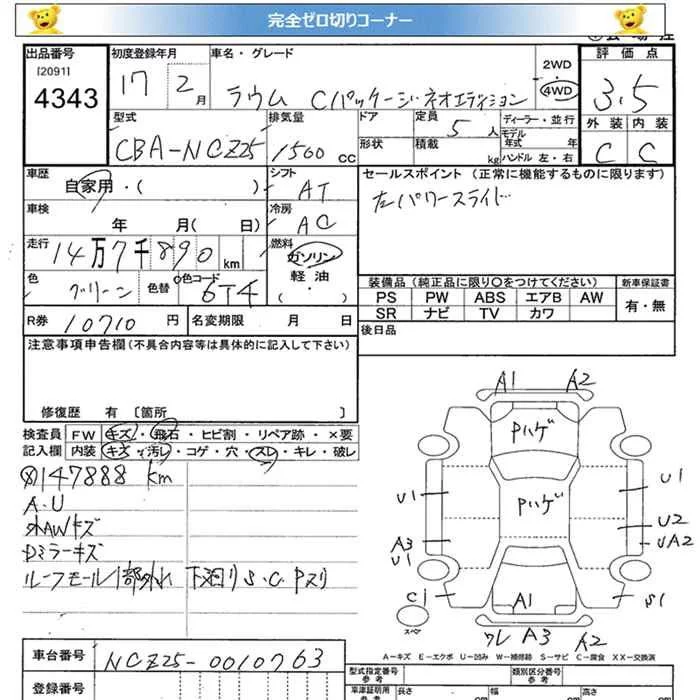 完全ゼロ切りコーナー
出品番号
[2091]
4343
初度登録年月
17 2月
車名・グレード
ラウム Cパッケージ・ネオエディション
2WD
4WD
評価点
3.5
外装 内装
C C
型式
CBA-NCZ25
排気量
1500 CC
ドア
形状
定員
5人
積載
kg
ディーラー・並行
モデル
年式 年
ハンドル 左・右
車歴
自家用・( )
シフト
AT
車検
年 月( 日)
冷房
AC
走行
14万7千890 km
燃料
ガソリン
軽油
・( )
色
グリーン
色替
色コード
6T4
セールスポイント (正常に機能するものに限ります)
左パワースライド
装備品 (純正品に限り○をつけてください)
PS PW ABS エアB AW
SR ナビ TV カワ
新車保証書
有・無
R券 10710 円
名変期限 月 日
後日品
注意事項申告欄 (不具合内容等は具体的に記入して下さい)
修復歴 有 〔箇所 〕
検査員 FW キズ・飛石・ヒビ割・リペア跡・×要
記入欄 内装 キズ・汚レ・コゲ・穴・スレ・キレ・破レ
147888 km
A.U
外AWキズ
Dミラーキズ
ルーフモール1部外れ 下廻りS.C. Pスリ
A1 A2
Pハゲ
Pハゲ
U1 U1
U2
A3 UA2
U1
C1 A1 S1
スペヤ
ワレ A3 A2
A-キズ E-エクボ U-凹み W-補修跡 S-サビ C-腐食 XX-交換済
車台番号 NCZ25-0010763
登録番号
型式指定番号
参考
類別区分番号
参考
車庫証明用
参考
長さ
cm
幅
cm
高さ
cm